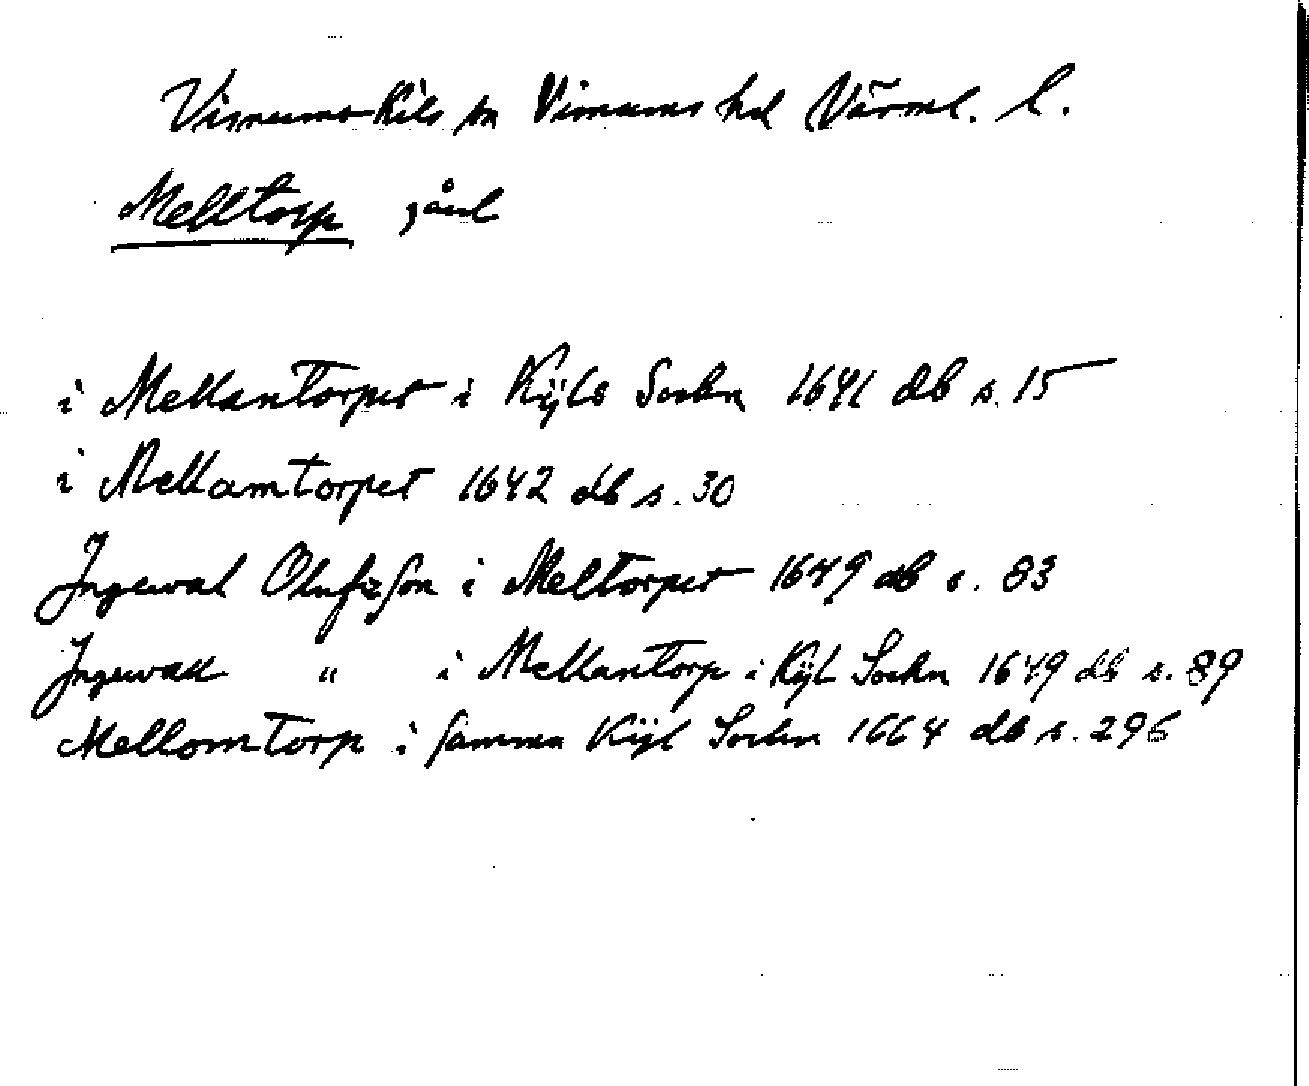 Visnums-Kils sn Visnums hd Värml. l.
Melltorp gård
i Mellantorpet i Kÿls Sochn 1641 db s. 15
i Mellamtorpet 1642 db s. 30
Ingewal Olufzson i Meltorpet 1649 db s. 83
Ingewall " i Mellantorp i Kÿl Sochn 1649 db s. 89
Mellomtorp i samma Kÿl Sochn 1664 db s. 296